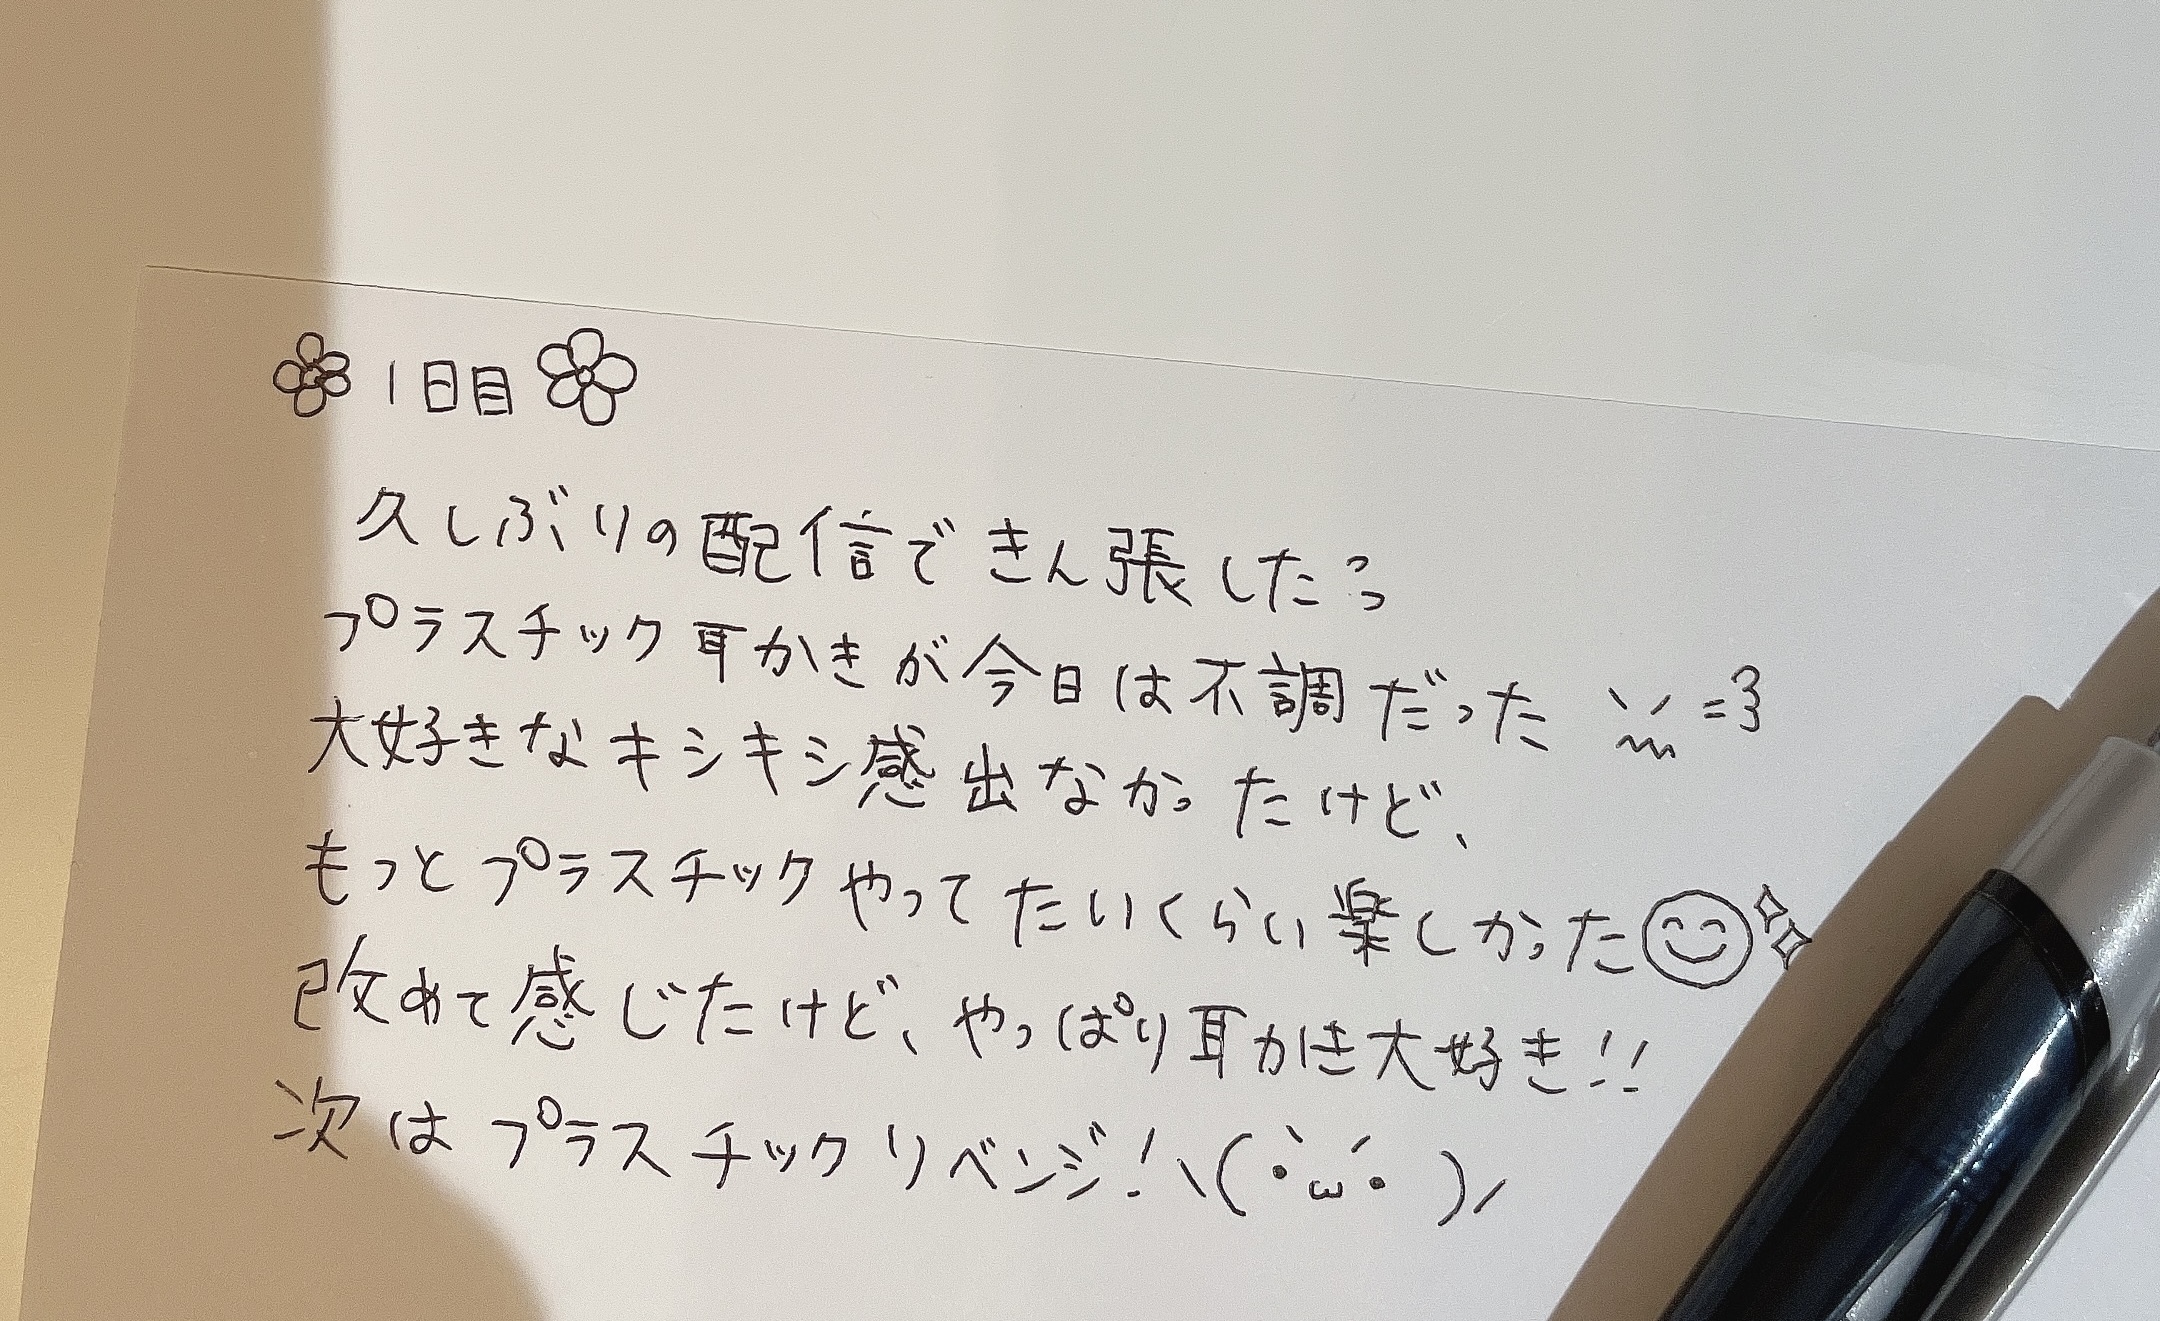 1日目
久しぶりの配信できん張したっ
プラスチック耳かきが今日は不調だった =3
大好きなキシキシ感出なかったけど、
もっとプラスチックやってたいくらい楽しかった
改めて感じたけど、やっぱり耳かき大好き!!
次はプラスチックリベンジ!ヽ(•̀ω•́ )ノ